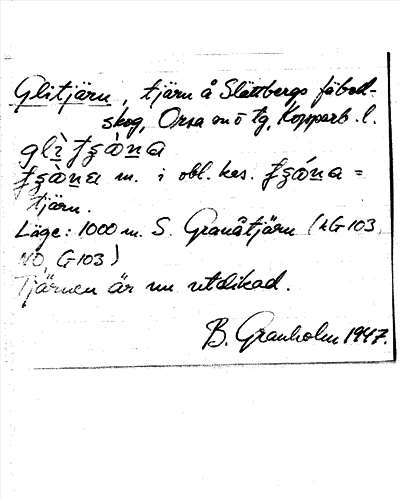 Glitjärn, tjärn å Slättbergs fäbod-
skog, Orsa snö tg, Kopparb. l.
glì
m. i obl. kas. =
tjärn.
Läge: 1000 m. S. Granåtjärn (kG 103,
NO, G 103)
Tjärnen är nu utdikad.
B. Granholm 1947.